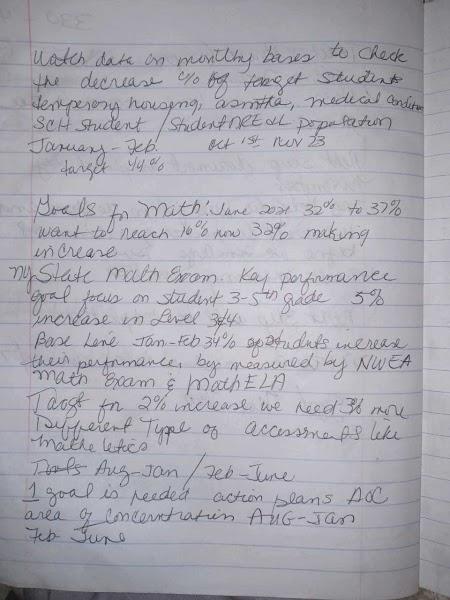 Watch data on monthly bases to check
the decrease % of target students
temperory housing, asmtha, medical condition
SCH student / Student NREAL population
January - Feb. oct 1st Nov 23
target 44%
Goals for Math! June 2021 32% to 37%
want to reach 16% now 32% making
increase
NY State Math Exam Key performance
goal focus on student 3-5th grade 5%
increase in Level 3&4
Base Line Jan-Feb 34% of students increase
their performance, by measured by NWEA
Math Exam & Math ELA
for 2% increase we need 3% more
Different Type of accessments like
Mathe letics
Aug-Jan / Feb-June
1 goal is needed action plans AOC
area of concentration AUG-JAN
Feb June